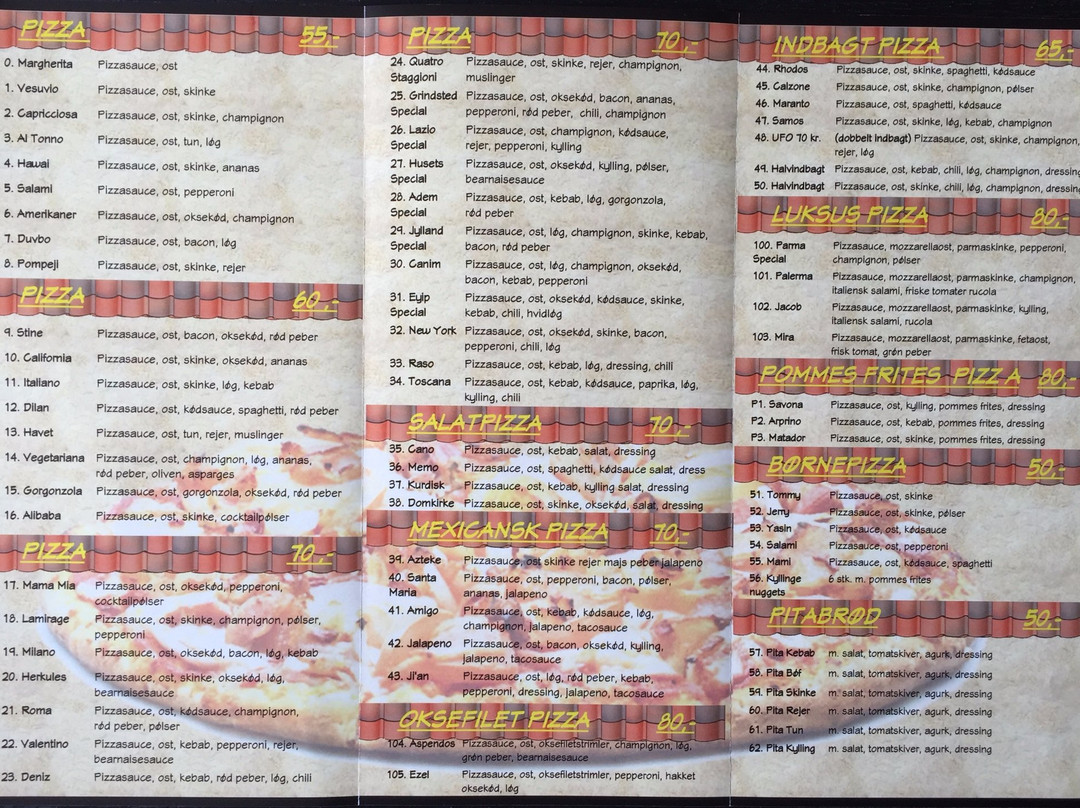 PIZZA 55,-
0. Margherita Pizzasauce, ost
1. Vesuvio Pizzasauce, ost, skinke
2. Capricciosa Pizzasauce, ost, skinke, champignon
3. Al Tonno Pizzasauce, ost, tun, løg
4. Hawai Pizzasauce, ost, skinke, ananas
5. Salami Pizzasauce, ost, pepperoni
6. Amerikaner Pizzasauce, ost, oksekød, champignon
7. Duvbo Pizzasauce, ost, bacon, løg
8. Pompeji Pizzasauce, ost, skinke, rejer
PIZZA 60,-
9. Stine Pizzasauce, ost, bacon, oksekød, rød peber
10. California Pizzasauce, ost, skinke, oksekød, ananas
11. Italiano Pizzasauce, ost, skinke, løg, kebab
12. Dilan Pizzasauce, ost, kødsauce, spaghetti, rød peber
13. Havet Pizzasauce, ost, tun, rejer, muslinger
14. Vegetariana Pizzasauce, ost, champignon, løg, ananas,
rød peber, oliven, asparges
15. Gorgonzola Pizzasauce, ost, gorgonzola, oksekød, rød peber
16. Alibaba Pizzasauce, ost, skinke, cocktailpølser
PIZZA 70,-
17. Mama Mia Pizzasauce, ost, oksekød, pepperoni,
cocktailpølser
18. Lamirage Pizzasauce, ost, skinke, champignon, pølser,
pepperoni
19. Milano Pizzasauce, ost, oksekød, bacon, løg, kebab
20. Herkules Pizzasauce, ost, skinke, oksekød, løg,
bearnaisesauce
21. Roma Pizzasauce, ost, kødsauce, champignon,
rød peber, pølser
22. Valentino Pizzasauce, ost, kebab, pepperoni, rejer,
bearnaisesauce
23. Deniz Pizzasauce, ost, kebab, rød peber, løg, chili
PIZZA 70,-
24. Quatro Pizzasauce, ost, skinke, rejer, champignon,
Staggioni muslinger
25. Grindsted Pizzasauce, ost, oksekød, bacon, ananas,
Special pepperoni, rød peber, chili, champignon
26. Lazio Pizzasauce, ost, champignon, kødsauce,
Special rejer, pepperoni, kylling
27. Husets Pizzasauce, ost, oksekød, kylling, pølser,
Special bearnaisesauce
28. Adem Pizzasauce, ost, kebab, løg, gorgonzola,
Special rød peber
29. Jylland Pizzasauce, ost, løg, champignon, skinke, kebab,
Special bacon, rød peber
30. Canim Pizzasauce, ost, løg, champignon, oksekød,
bacon, kebab, pepperoni
31. Eyip Pizzasauce, ost, oksekød, kødsauce, skinke,
Special kebab, chili, hvidløg
32. New York Pizzasauce, ost, oksekød, skinke, bacon,
pepperoni, chili, løg
33. Raso Pizzasauce, ost, kebab, løg, dressing, chili
34. Toscana Pizzasauce, ost, kebab, kødsauce, paprika, løg,
kylling, chili
SALATPIZZA 70,-
35. Cano Pizzasauce, ost, kebab, salat, dressing
36. Memo Pizzasauce, ost, spaghetti, kødsauce salat, dress
37. Kurdisk Pizzasauce, ost, kebab, kylling salat, dressing
38. Domkirke Pizzasauce, ost, skinke, oksekød, salat, dressing
MEXICANSK PIZZA 70,-
39. Azteke Pizzasauce, ost skinke rejer majs peber jalapeno
40. Santa Pizzasauce, ost, pepperoni, bacon, pølser,
Maria ananas, jalapeno
41. Amigo Pizzasauce, ost, kebab, kødsauce, løg,
champignon, jalapeno, tacosauce
42. Jalapeno Pizzasauce, ost, bacon, oksekød, kylling,
jalapeno, tacosauce
43. Ji'an Pizzasauce, ost, løg, rød peber, kebab,
pepperoni, dressing, jalapeno, tacosauce
OKSEFILET PIZZA 80,-
104. Aspendos Pizzasauce, ost, oksefiletstrimler, champignon, løg,
grøn peber, bearnaisesauce
105. Ezel Pizzasauce, ost, oksefiletstrimler, pepperoni, hakket
oksekød, løg
INDBAGT PIZZA 65,-
44. Rhodos Pizzasauce, ost, skinke, spaghetti, kødsauce
45. Calzone Pizzasauce, ost, skinke, champignon, pølser
46. Maranto Pizzasauce, ost, spaghetti, kødsauce
47. Samos Pizzasauce, ost, skinke, løg, kebab, champignon
48. UFO 70 kr. (dobbelt indbagt) Pizzasauce, ost, skinke, champignon,
rejer, løg
49. Halvindbagt Pizzasauce, ost, kebab, chili, løg, champignon, dressing
50. Halvindbagt Pizzasauce, ost, skinke, chili, løg, champignon, dressing
LUKSUS PIZZA 80,-
100. Parma Pizzasauce, mozzarellaost, parmaskinke, pepperoni,
Special champignon, pølser
101. Palerma Pizzasauce, mozzarellaost, parmaskinke, champignon,
italiensk salami, friske tomater rucola
102. Jacob Pizzasauce, mozzarellaost, parmaskinke, kylling,
italiensk salami, rucola
103. Mira Pizzasauce, mozzarellaost, parmaskinke, fetaost,
frisk tomat, grøn peber
POMMES FRITES PIZZA 80,-
P1. Savona Pizzasauce, ost, kylling, pommes frites, dressing
P2. Arprino Pizzasauce, ost, kebab, pommes frites, dressing
P3. Matador Pizzasauce, ost, skinke, pommes frites, dressing
BØRNEPIZZA 50,-
51. Tommy Pizzasauce, ost, skinke
52. Jerry Pizzasauce, ost, skinke, pølser
53. Yasin Pizzasauce, ost, kødsauce
54. Salami Pizzasauce, ost, pepperoni
55. Mami Pizzasauce, ost, kødsauce, spaghetti
56. Kyllinge 6 stk. m. pommes frites
nuggets
PITABRØD 50,-
57. Pita Kebab m. salat, tomatskiver, agurk, dressing
58. Pita Bøf m. salat, tomatskiver, agurk, dressing
59. Pita Skinke m. salat, tomatskiver, agurk, dressing
60. Pita Rejer m. salat, tomatskiver, agurk, dressing
61. Pita Tun m. salat, tomatskiver, agurk, dressing
62. Pita Kylling m. salat, tomatskiver, agurk, dressing